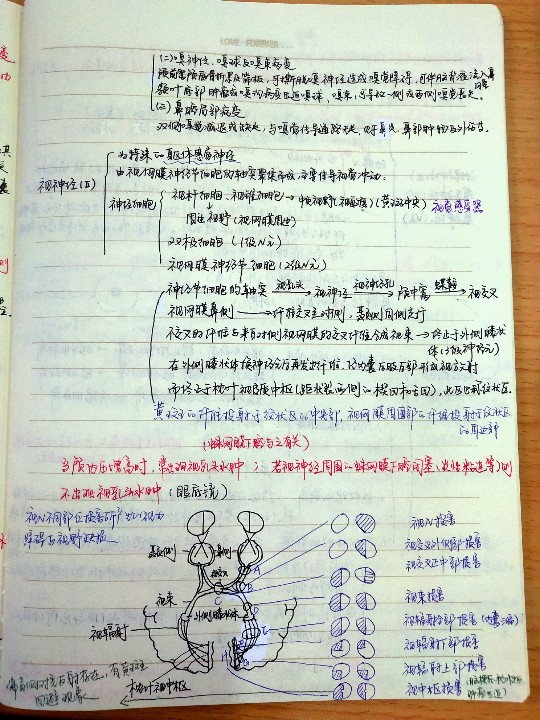 LOVE FOREVER
(二)嗅神经、嗅球及嗅束病变
颅前窝颅底骨折累及筛板,可撕脱嗅神经造成嗅觉障碍,可伴脑脊液流入鼻腔
额叶底部肿瘤或嗅沟病变压迫嗅球、嗅束,可导致一侧或两侧嗅觉丧失。
(三)鼻腔局部病变
双侧嗅觉减退或缺失,与嗅觉传导通路无关,
为特殊的躯体感觉神经
由视网膜神经节细胞的轴突聚集而成,主要传导视觉冲动
视神经(Ⅱ)
神经细胞
视杆细胞、视锥细胞 → 中央视野(视敏度)(黄斑中央) 视觉感受器
周边视野(视网膜周边)
双极细胞(1级N元)
视网膜神经节细胞(2级N元)
神经节细胞的轴突 视乳头→ 视神经 视神经孔→ 颅中窝 蝶鞍→ 视交叉
视网膜鼻侧 → 纤维交叉至对侧,颞侧同侧走行
不交叉的纤维与来自对侧视网膜的交叉纤维合成视束 → 终止于外侧膝状
体(3级神经元)
在外侧膝状体换神经元后再发出纤维,经内囊后肢后部形成视辐射
而终止于枕叶视皮质中枢(距状裂两侧的楔回和舌回),此区也称纹状区.
黄斑的纤维投射于纹状区的中央部,视网膜周围部的纤维投射于纹状区
的周边部
(蛛网膜下腔与之有关)
当颅内压增高时,常出现视乳头水肿;若视神经周围的蛛网膜下腔闭塞(炎性粘连等)则
不出现视乳头水肿(眼底镜)
视N不同部位损害所产生的视力
障碍与视野缺损.
颞侧
鼻侧
视交叉
A
B
C
视束
外侧膝状体
D
视辐射
枕叶视中枢
视N损害
视交叉外侧部损害
视交叉正中部损害
视束损害
视辐射全部损害(内囊)
视辐射下部损害
视辐射上部损害
视中枢损害
偏盲侧对光反射存在,有黄斑
回避现象